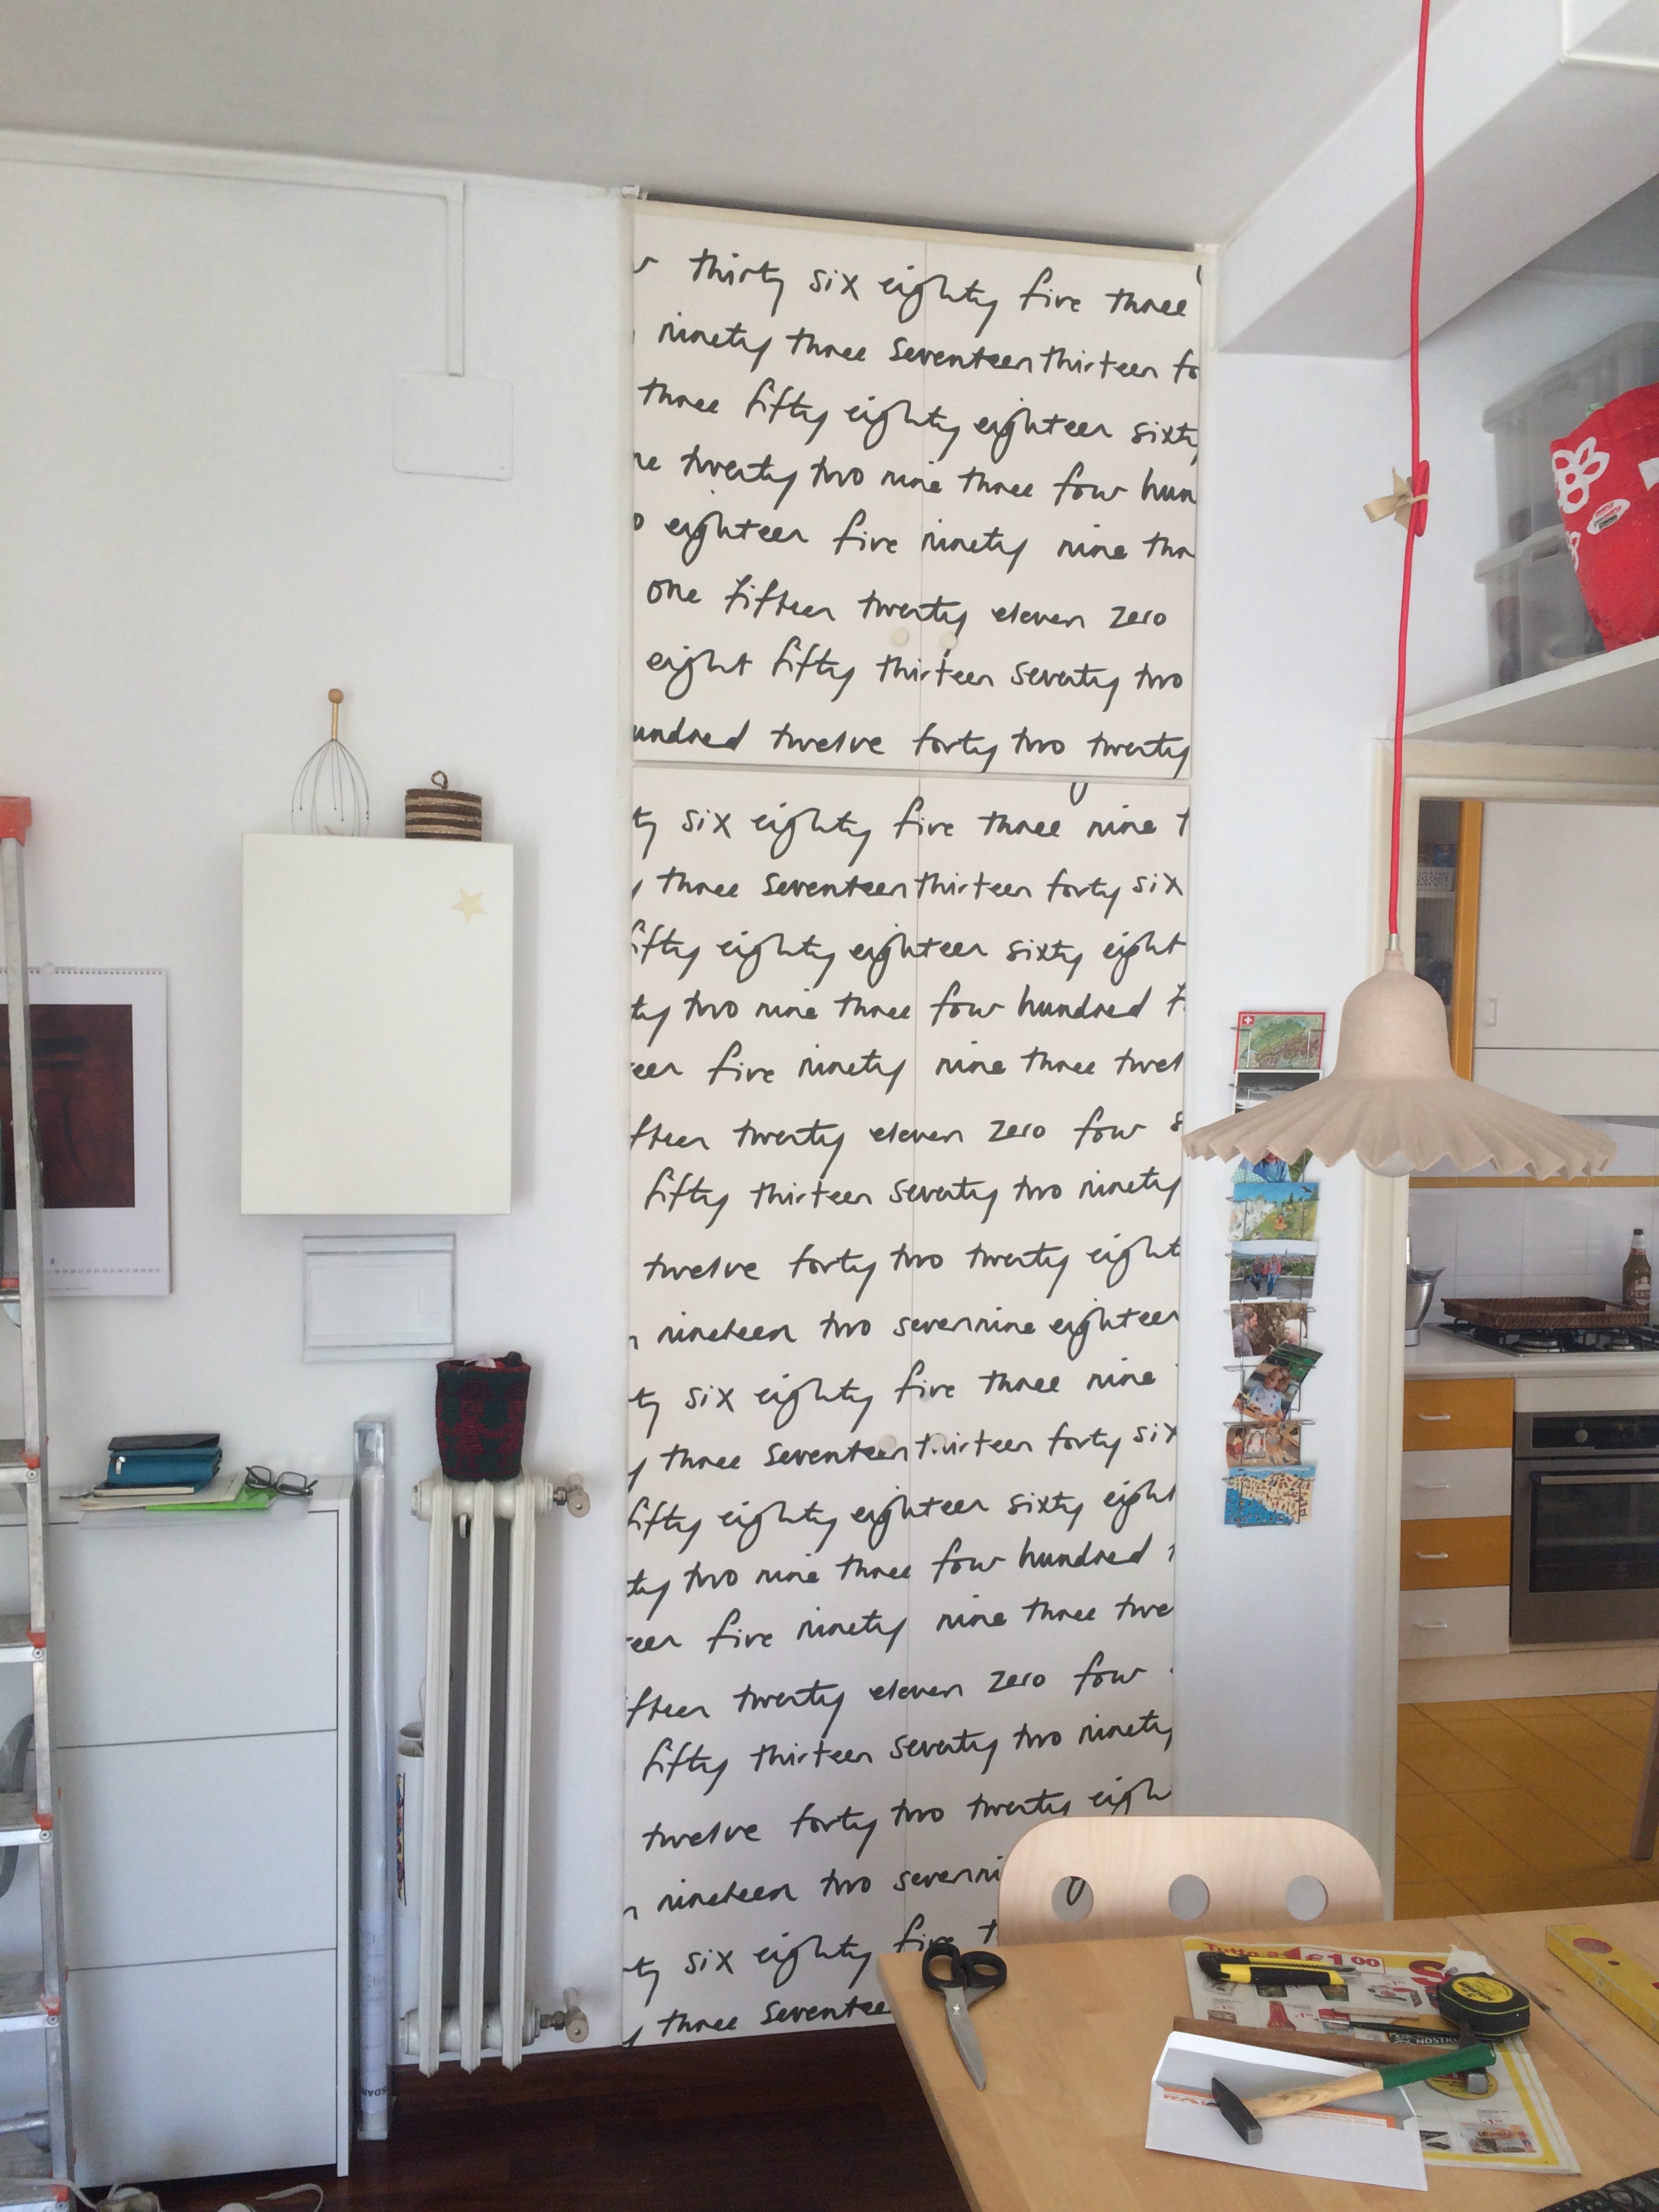 thirty six eighty five three
ninety three seventeen thirteen fo
three fifty eighty eighteen sixty
ne twenty two nine three four hun
o eighteen five ninety nine thr
one fifteen twenty eleven zero
eight fifty thirteen seventy two
undred twelve forty two twenty
ty six eighty five three nine t
y three seventeen thirteen forty six
ifty eighty eighteen sixty eight
ty two nine three four hundred f
een five ninety nine three twel
fteen twenty eleven zero four s
fifty thirteen seventy two ninety
twelve forty two twenty eight
n nineteen two seven nine eighteen
ty six eighty five three nine
y three seventeen thirteen forty six
fifty eighty eighteen sixty eight
ty two nine three four hundred
een five ninety nine three twe
fteen twenty eleven zero four
fifty thirteen seventy two ninety
twelve forty two twenty eigh
n nineteen two seven ni
ty six eighty five t
y three seventee
Tutto a €1,00